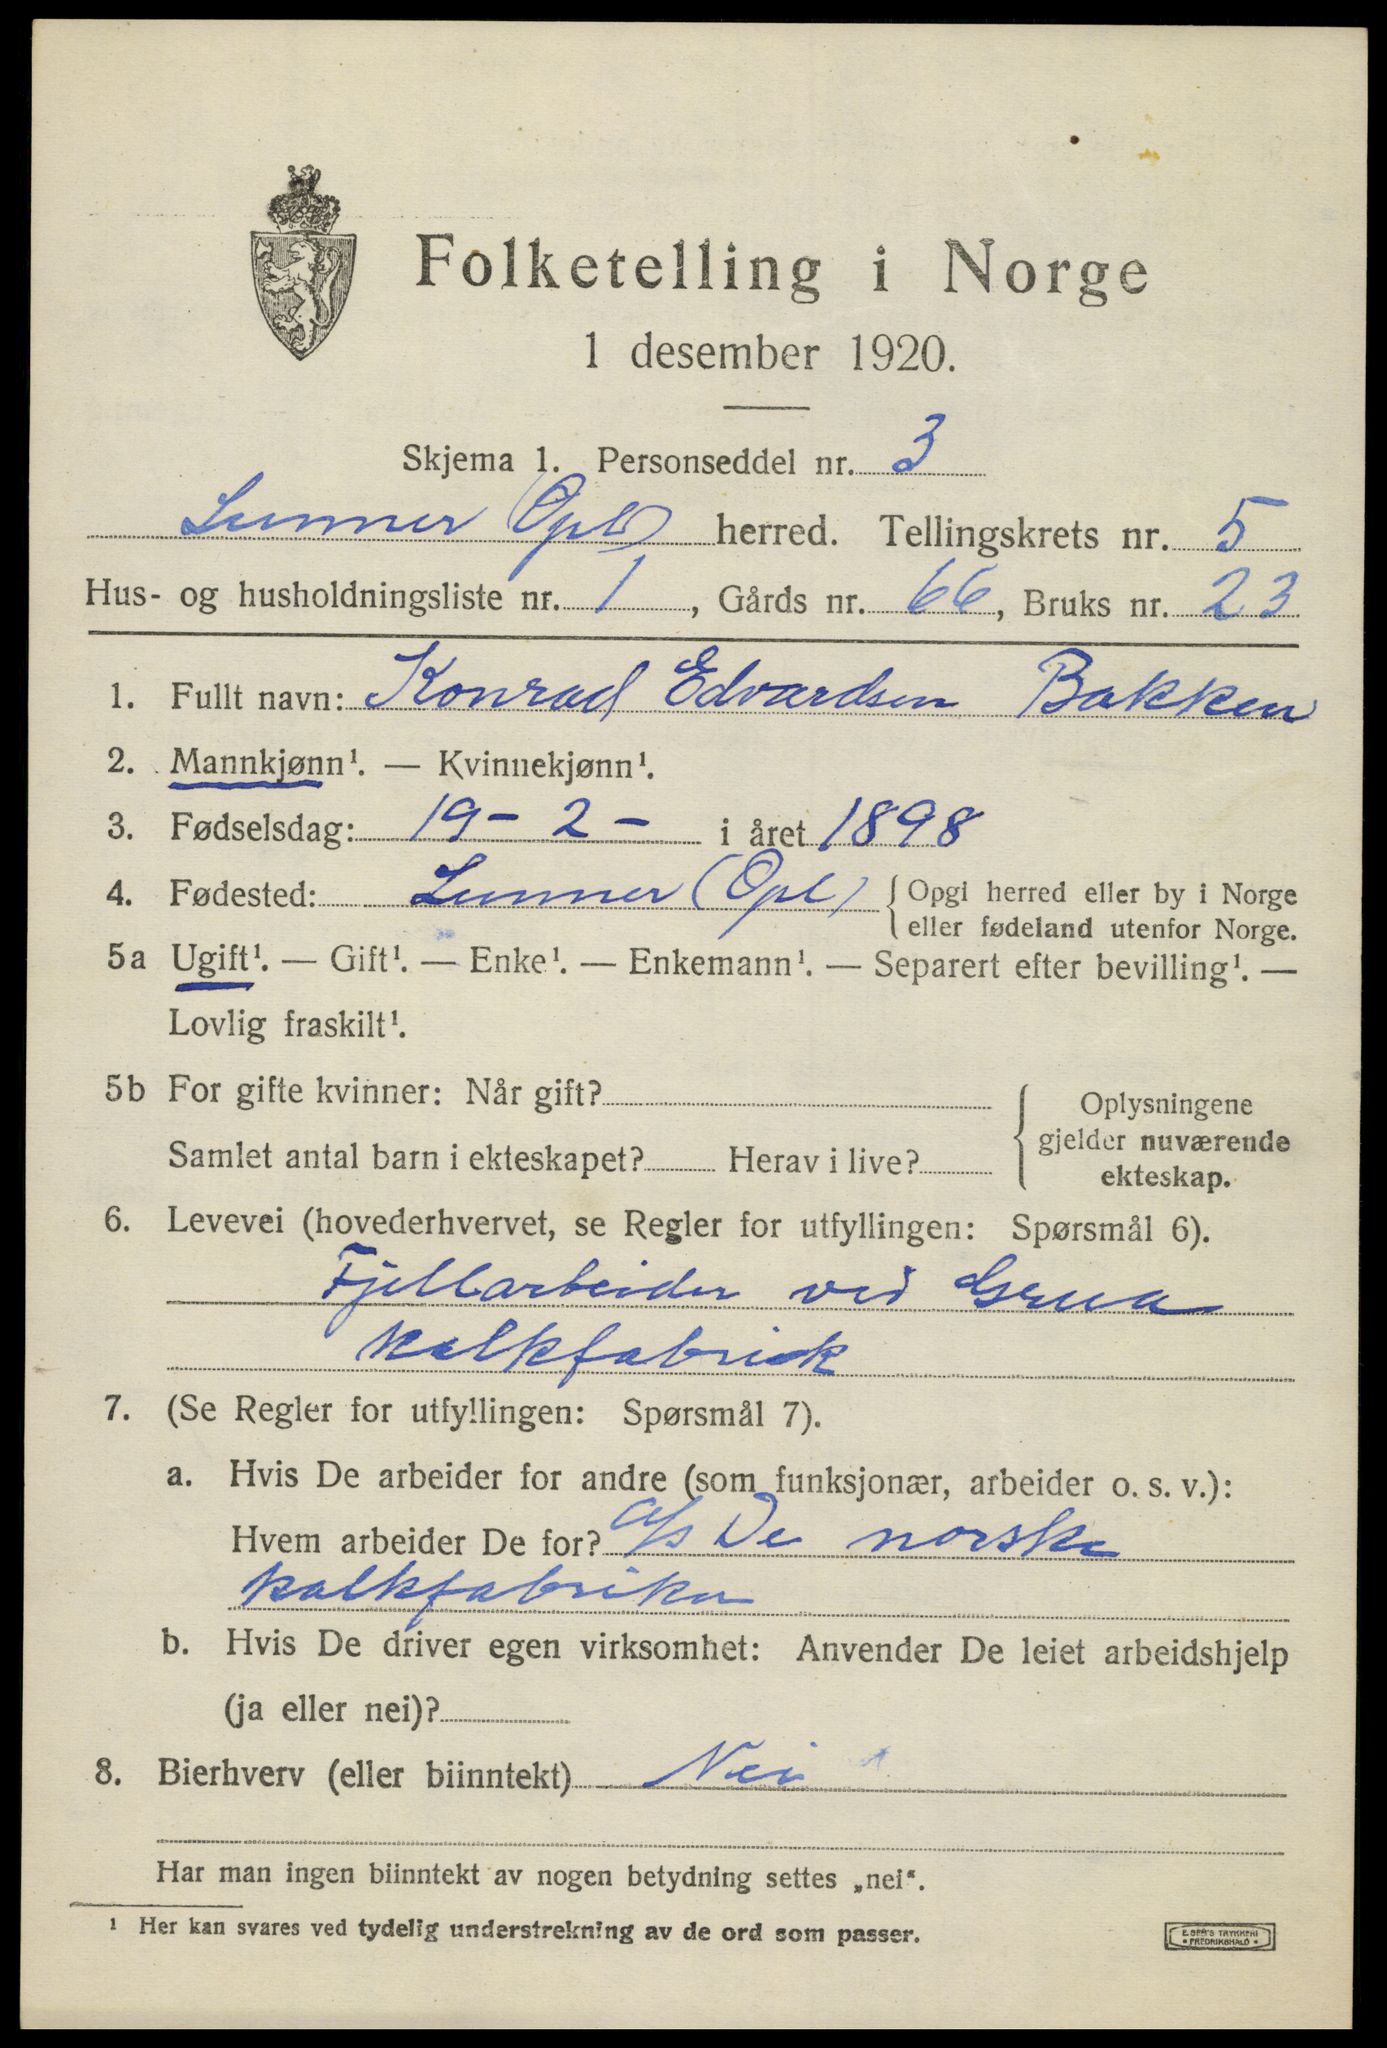 Folketelling i Norge
1 desember 1920.
Skjema 1. Personseddel nr. 3
Lunner (Opl) herred. Tellingskrets nr. 5
Hus- og husholdningsliste nr. 1, Gårds nr. 66, Bruks nr. 23
1. Fullt navn: Konrad Edvardsen Bakken
2. Mannkjønn¹. — Kvinnekjønn¹.
3. Fødselsdag: 19 - 2 - i året 1898
4. Fødested: Lunner (Opl) { Opgi herred eller by i Norge
eller fødeland utenfor Norge.
5a Ugift¹. — Gift¹. — Enke¹. — Enkemann¹. — Separert efter bevilling¹. —
Lovlig fraskilt¹.
5b For gifte kvinner: Når gift?
Samlet antal barn i ekteskapet? Herav i live?
Oplysningene
gjelder nuværende
ekteskap.
6. Levevei (hovederhvervet, se Regler for utfyllingen: Spørsmål 6).
Fjellarbeider ved Grua
kalkfabrick
7. (Se Regler for utfyllingen: Spørsmål 7).
a. Hvis De arbeider for andre (som funksjonær, arbeider o. s. v.):
Hvem arbeider De for? a/s De norske
kalkfabriker
b. Hvis De driver egen virksomhet: Anvender De leiet arbeidshjelp
(ja eller nei)?
8. Bierhverv (eller biinntekt) Nei
Har man ingen biinntekt av nogen betydning settes „nei“.
¹ Her kan svares ved tydelig understrekning av de ord som passer.
E. SEM'S TRYKKERI
• FREDRIKSHALD •